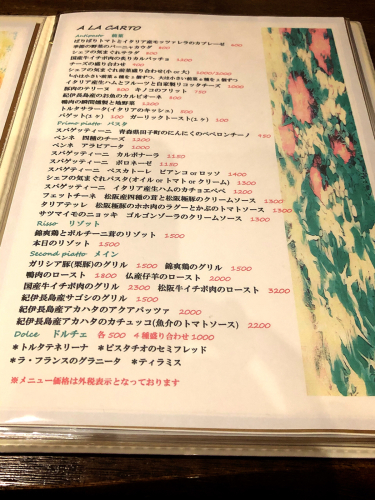 A LA CARTO
Antipasto 前菜
ぱりぱりトマトとイタリア産モッツァレラのカプレーゼ 800
季節の野菜のバーニャカウダ 800
シェフの気まぐれサラダ 800
国産牛イチボ肉の炙りカルパッチョ 1500
チーズの盛り合わせ 400
シェフの気まぐれ前菜盛り合わせ(小 or 大) 1000/2000
イタリア産生ハムとフルーツと自家製リコッタチーズ 1000
豚肉のテリーヌ 800 キノコのフリット 750
紀伊長島産のお魚のカルピオーネ 800
鴨肉の瞬間燻製と地野菜 1200
トルタサラータ(イタリアのキッシュ) 500
バゲット(1ヶ) 100 ガーリックトースト(1ヶ) 100
Primo piatto パスタ
スパゲッティーニ 青森県田子町のにんにくのペペロンチーノ 950
ペンネ 四種のチーズ 1200
ペンネ アラビアータ 1000
スパゲッティーニ カルボナーラ 1150
スパゲッティーニ ボロネーゼ 1150
スパゲッティーニ ペスカトーレ ビアンコ or ロッソ 1400
シェフの気まぐれパスタ(オイル or トマト or クリーム) 1300
スパゲッティーニ イタリア産生ハムのカチョエペペ 1200
フェットチーネ 松阪産四種の茸と松阪極豚のクリームソース 1300
タリアテッレ 松阪極豚のホホ肉のラグーとかぶのトマトソース 1300
サツマイモのニョッキ ゴルゴンゾーラのクリームソース 1300
Risso リゾット
錦爽鶏とポルチーニ茸のリゾット 1500
本日のリゾット 1500
Second piatto メイン
ガリシア豚(栗豚)のグリル 1500 錦爽鶏のグリル 1500
鴨肉のロースト 1800 仏産仔羊のロースト 2000
国産牛イチボ肉のグリル 2300 松阪牛イチボ肉のグリル 3200
紀伊長島産サゴシのグリル 1500
紀伊長島産アカハタのアクアパッツァ 2000
紀伊長島産アカハタのカチュッコ(魚介のトマトソース) 2200
Dolce ドルチェ 各500 4種盛り合わせ1000
＊トルタテネリーナ ＊ピスタチオのセミフレッド
＊ラ・フランスのグラニータ ＊ティラミス
※メニュー価格は外税表示となっております